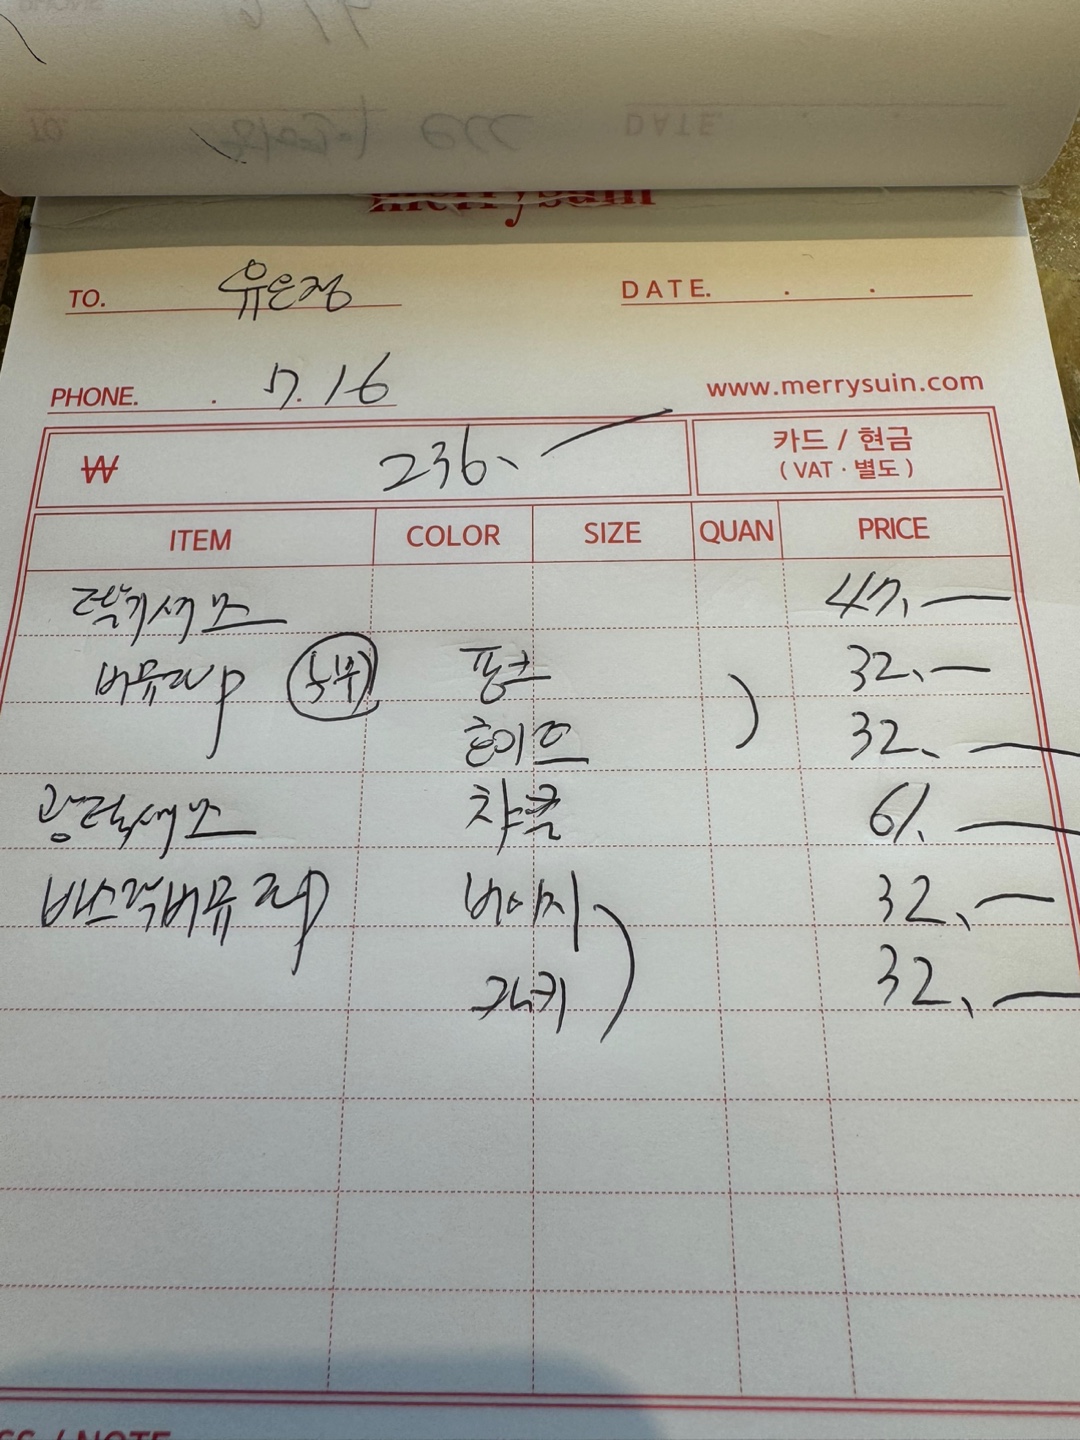 merrysuin
TO. 유은정 DATE. . .
PHONE. . 7.16 www.merrysuin.com
₩ 236、— 카드 / 현금
( VAT · 별도 )
ITEM COLOR SIZE QUAN PRICE
47、—
버뮤다P 핑크 32、—
화이트 32、—
차콜 61、—
바스락버뮤다P 베이지 32、—
카키 32、—
/ NOTE